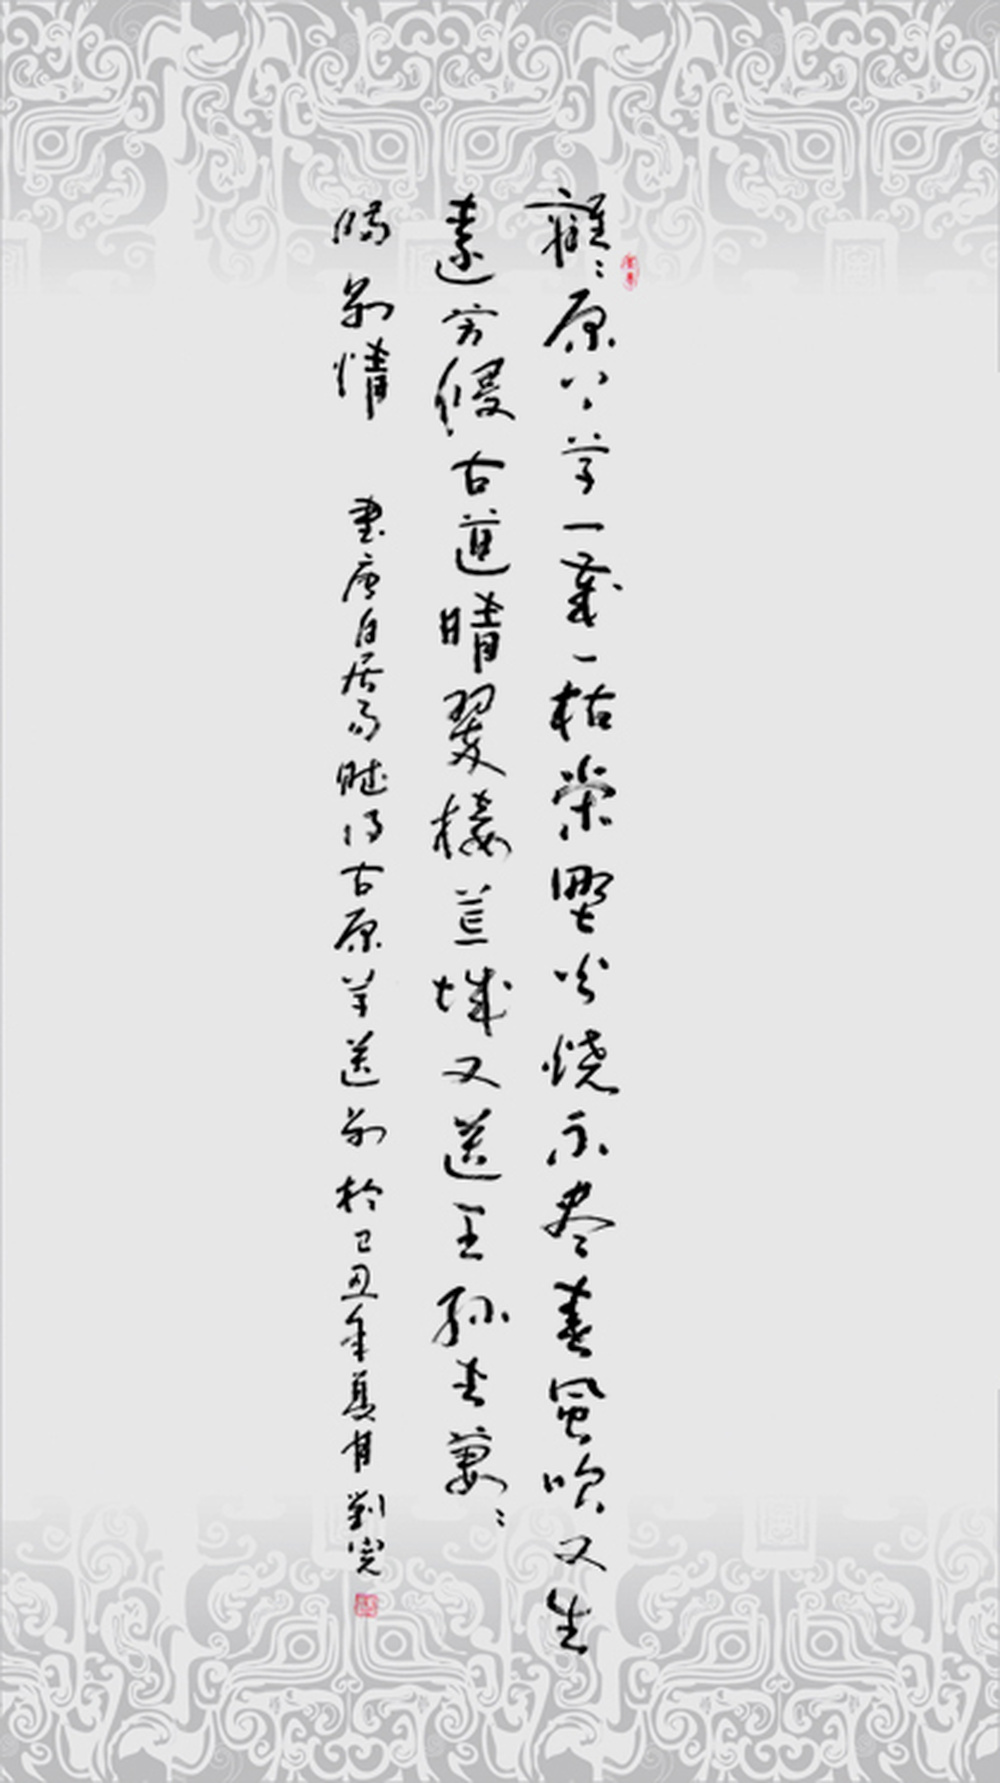 離〻原上草一歲一枯榮野火燒不盡春風吹又生
遠芳侵古道晴翠接荒城又送王孫去萋〻
滿別情 書唐白居易賦得古原草送別於己丑年夏月劉